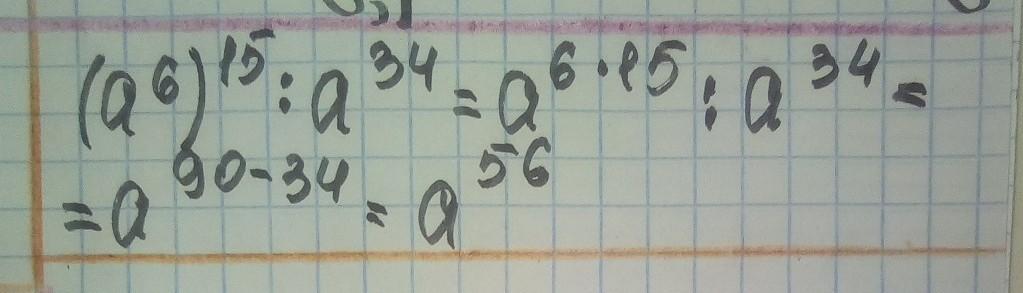 (a⁶)¹⁵ : a³⁴ = a⁶·¹⁵ : a³⁴ =
= a⁹⁰⁻³⁴ = a⁵⁶